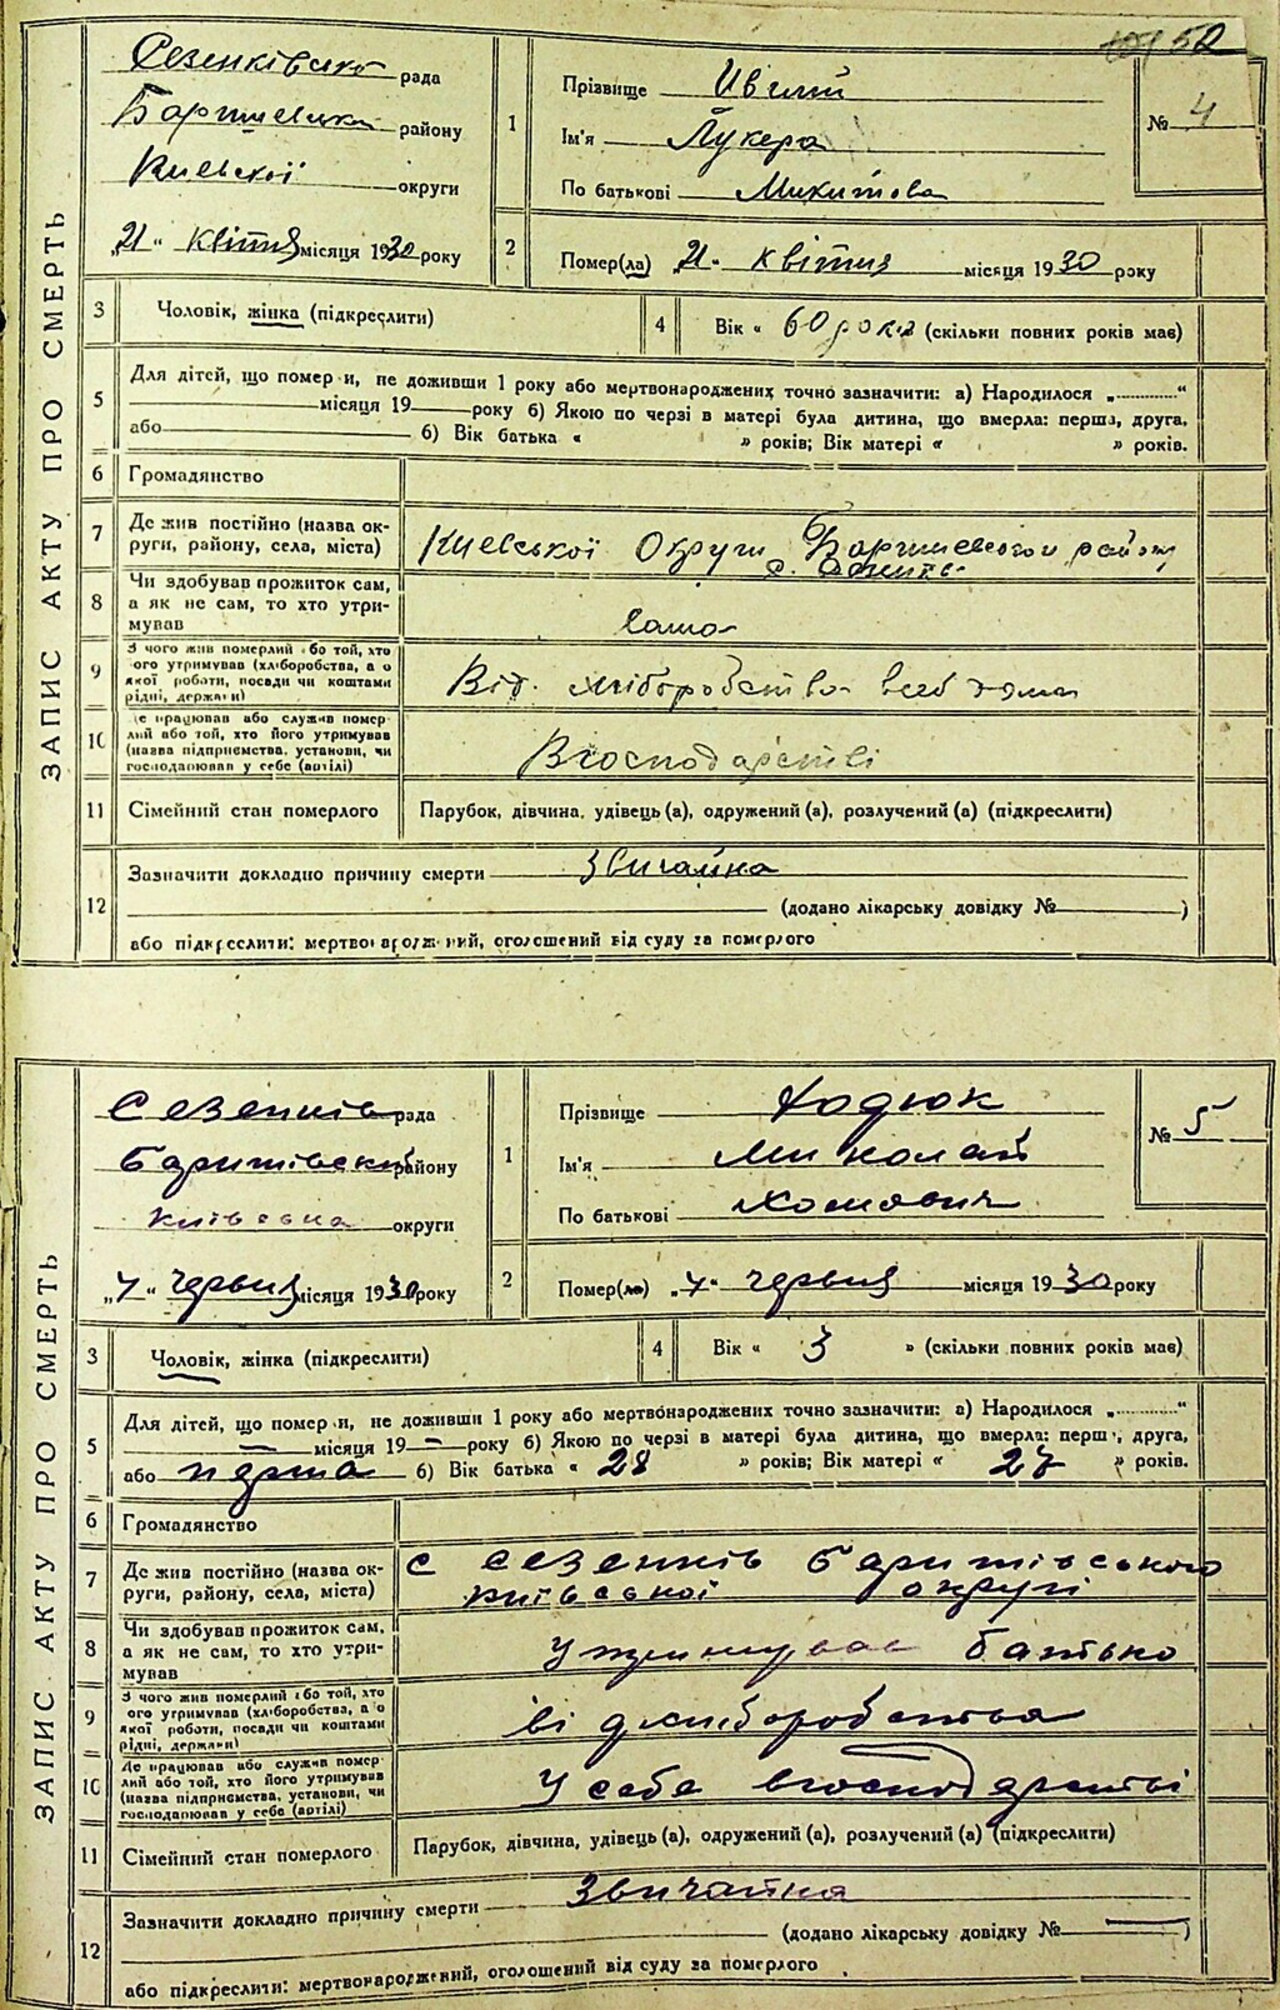 52
ЗАПИС АКТУ ПРО СМЕРТЬ
Сезенківська рада
району
Київської округи
„21“ квітня місяця 1930 року
1
Прізвище
Ім'я Лукера
По батькові Микитова
№ 4
2
Помер(ла) „21“ квітня місяця 1930 року
3 Чоловік, жінка (підкреслити)
4 Вік « 60 років (скільки повних років має)
5 Для дітей, що померли, не доживши 1 року або мертвонароджених точно зазначити: а) Народилося „............“
місяця 19 року б) Якою по черзі в матері була дитина, що вмерла: перша, друга,
або б) Вік батька « » років; Вік матері « » років.
6 Громадянство
7 Де жив постійно (назва ок-
руги, району, села, міста)
Київської Округи району
с.
8 Чи здобував прожиток сам,
а як не сам, то хто утри-
мував
сама
9 З чого жив померлий або той, хто
його утримував (хліборобства, а о
якої роботи, посади чи коштами
рідні, держави)
Від. хліборобства
10 Де працював або служив помер-
лий або той, хто його утримував
(назва підприємства, установи, чи
господарював у себе (артілі)
В господарстві
11 Сімейний стан померлого
Парубок, дівчина, удівець (а), одружений (а), розлучений (а) (підкреслити)
12 Зазначити докладно причину смерти звичайна
(додано лікарську довідку № )
або підкреслити: мертвонароджений, оголошений від суду за померлого
ЗАПИС АКТУ ПРО СМЕРТЬ
Сезенків рада
Баришівський району
Київська округи
„7“ червня місяця 1930 року
1
Прізвище Ходюк
Ім'я Миколай
По батькові Хомович
№ 5
2
Помер(ла) „7“ червня місяця 1930 року
3 Чоловік, жінка (підкреслити)
4 Вік « 3 » (скільки повних років має)
5 Для дітей, що померли, не доживши 1 року або мертвонароджених точно зазначити: а) Народилося „............“
— місяця 19 — року б) Якою по черзі в матері була дитина, що вмерла: перша, друга,
або перша б) Вік батька « 28 » років; Вік матері « 27 » років.
6 Громадянство
7 Де жив постійно (назва ок-
руги, району, села, міста)
с Сезенків Баришівського
київської округі
8 Чи здобував прожиток сам,
а як не сам, то хто утри-
мував
Утримував батько
9 З чого жив померлий або той, хто
його утримував (хліборобства, а о
якої роботи, посади чи коштами
рідні, держави)
від хліборобства
10 Де працював або служив помер-
лий або той, хто його утримував
(назва підприємства, установи, чи
господарював у себе (артілі)
У себе в господарстві
11 Сімейний стан померлого
Парубок, дівчина, удівець (а), одружений (а), розлучений (а) (підкреслити)
12 Зазначити докладно причину смерти Звичайна
(додано лікарську довідку № — )
або підкреслити: мертвонароджений, оголошений від суду за померлого